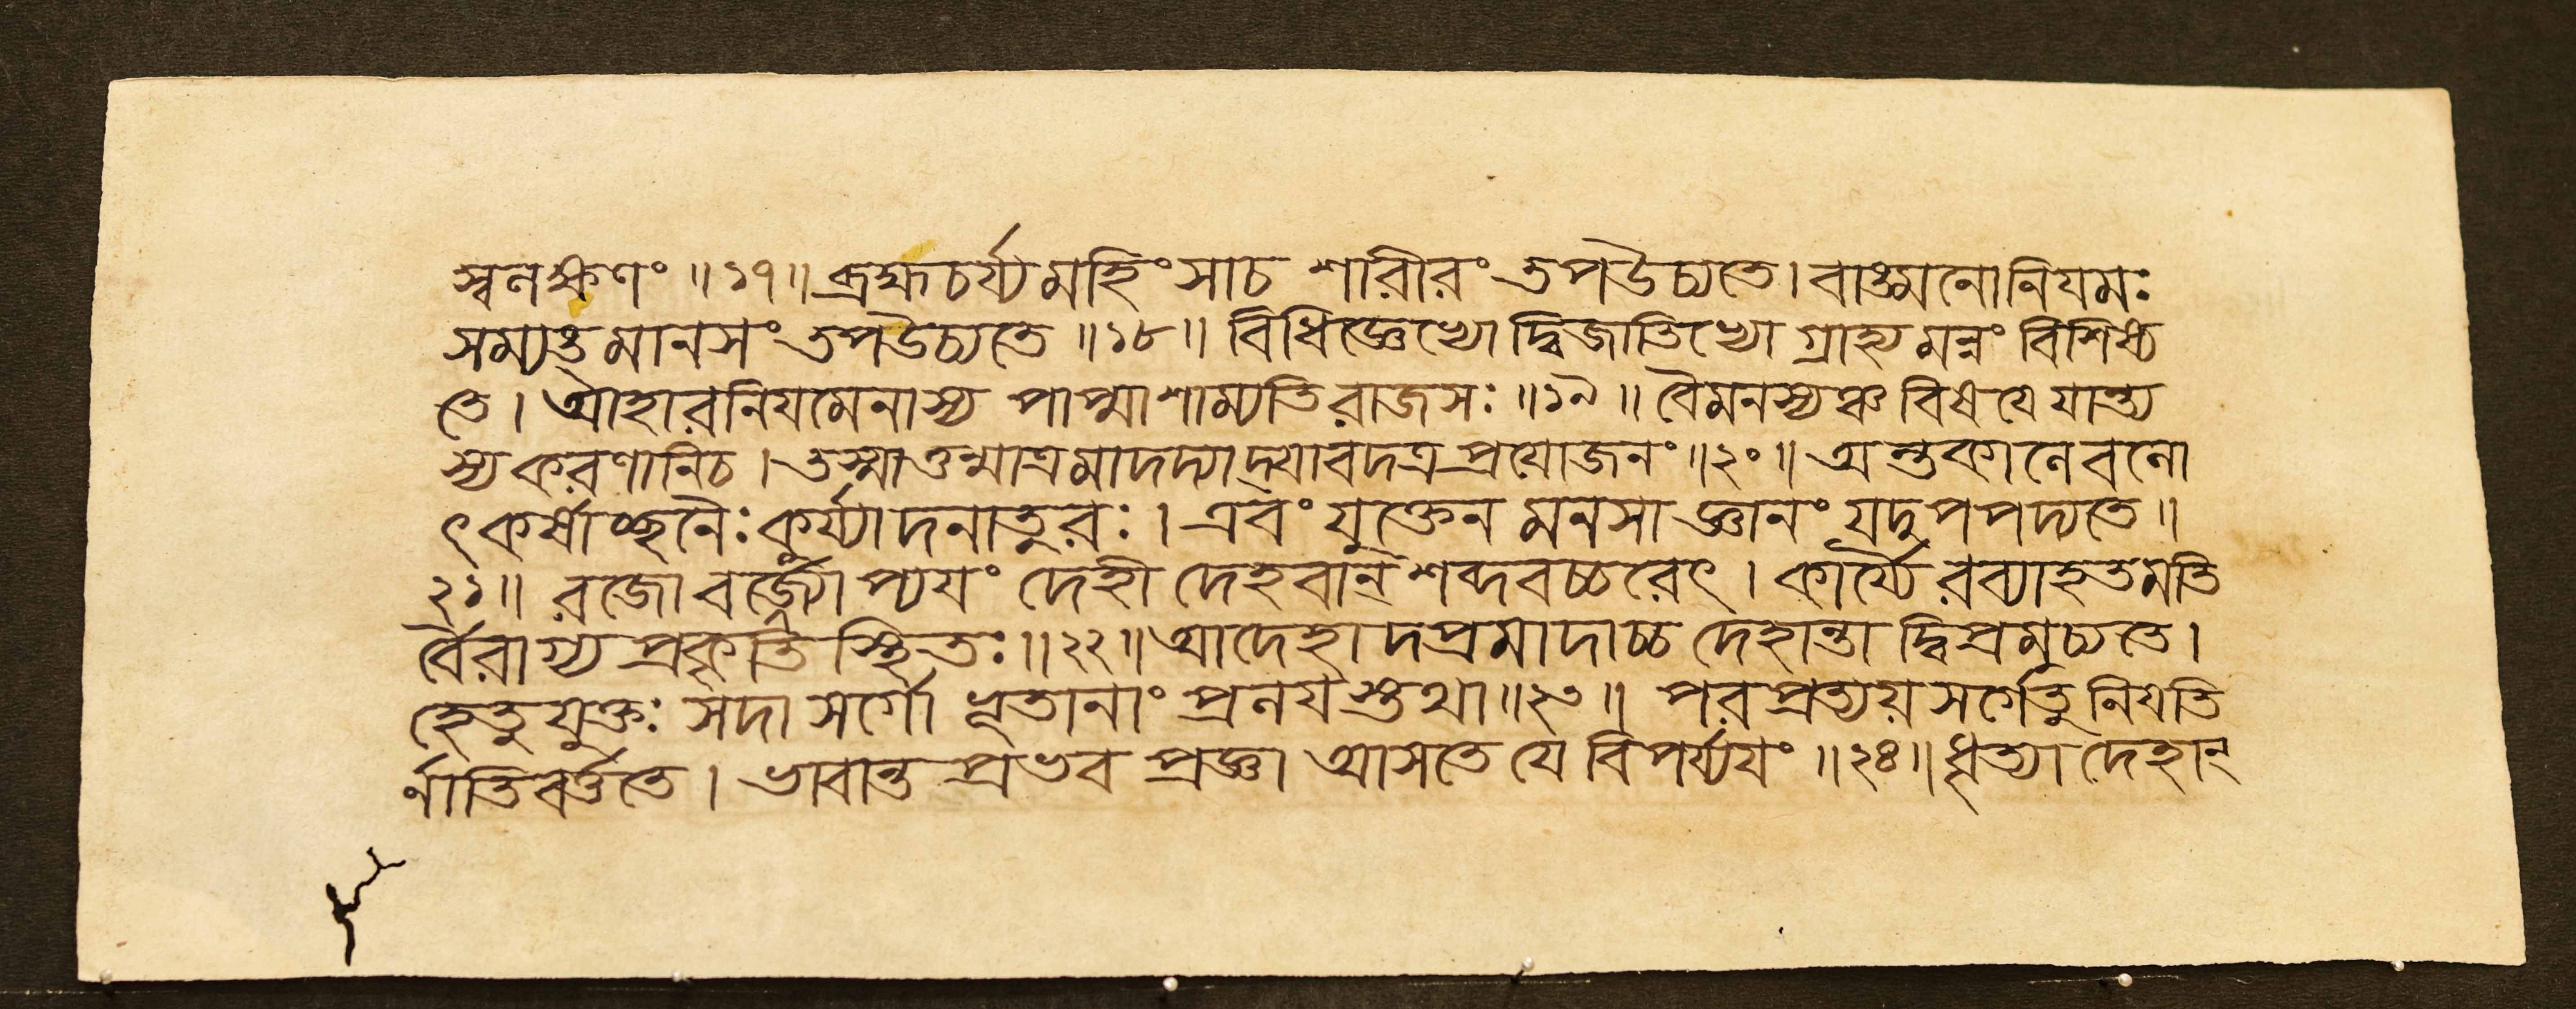 স্বলক্ষণং ॥১৭॥ ব্রহ্মচর্য্যমহিংসাচ শারীরং তপউচ্যতে। বাঙ্মনোনিযমঃ
সম্যঙ্ মানসং তপউচ্যতে ॥১৮॥ বিধিজ্ঞেভ্যো দ্বিজাতিভ্যো গ্রাহ্যমন্নং বিশিষ্য
তে। আহারনিযমেনাস্য পাপ্মাশাম্যতিরাজসঃ ॥১৯॥ বৈমনস্যঞ্চ বিষযে যান্ত্য
স্য করণানিচ। তস্মাত্তন্মাত্রমাদদ্যাদ্যাবদত্র প্রযোজনং ॥২০॥ অন্তকালেবলো
ৎকর্ষাচ্ছনৈঃ কুর্য্যাদনাতুরঃ। এবং যুক্তেন মনসা জ্ঞানং যদুপপদ্যতে॥
২১॥ রজোবর্জ্যোপ্যযং দেহী দেহবান্ শব্দবচ্চরেৎ। কার্য্যৈরব্যাহতমতি
র্বৈরাগ্য প্রকৃতি স্থিতঃ ॥২২॥ আদেহাদপ্রমাদাচ্চ দেহান্তাদ্বিপ্রমুচ্যতে।
হেতুযুক্তঃ সদা সর্গো ভূতানাং প্রলযস্তথা ॥২৩॥ পরপ্রত্যয়সর্গেতু নিযতি
র্নাতিবর্ত্ততে। ভাবান্ত প্রভব প্রজ্ঞা আসতে যে বিপর্য্যযং ॥২৪॥ ধৃত্যা দেহান্